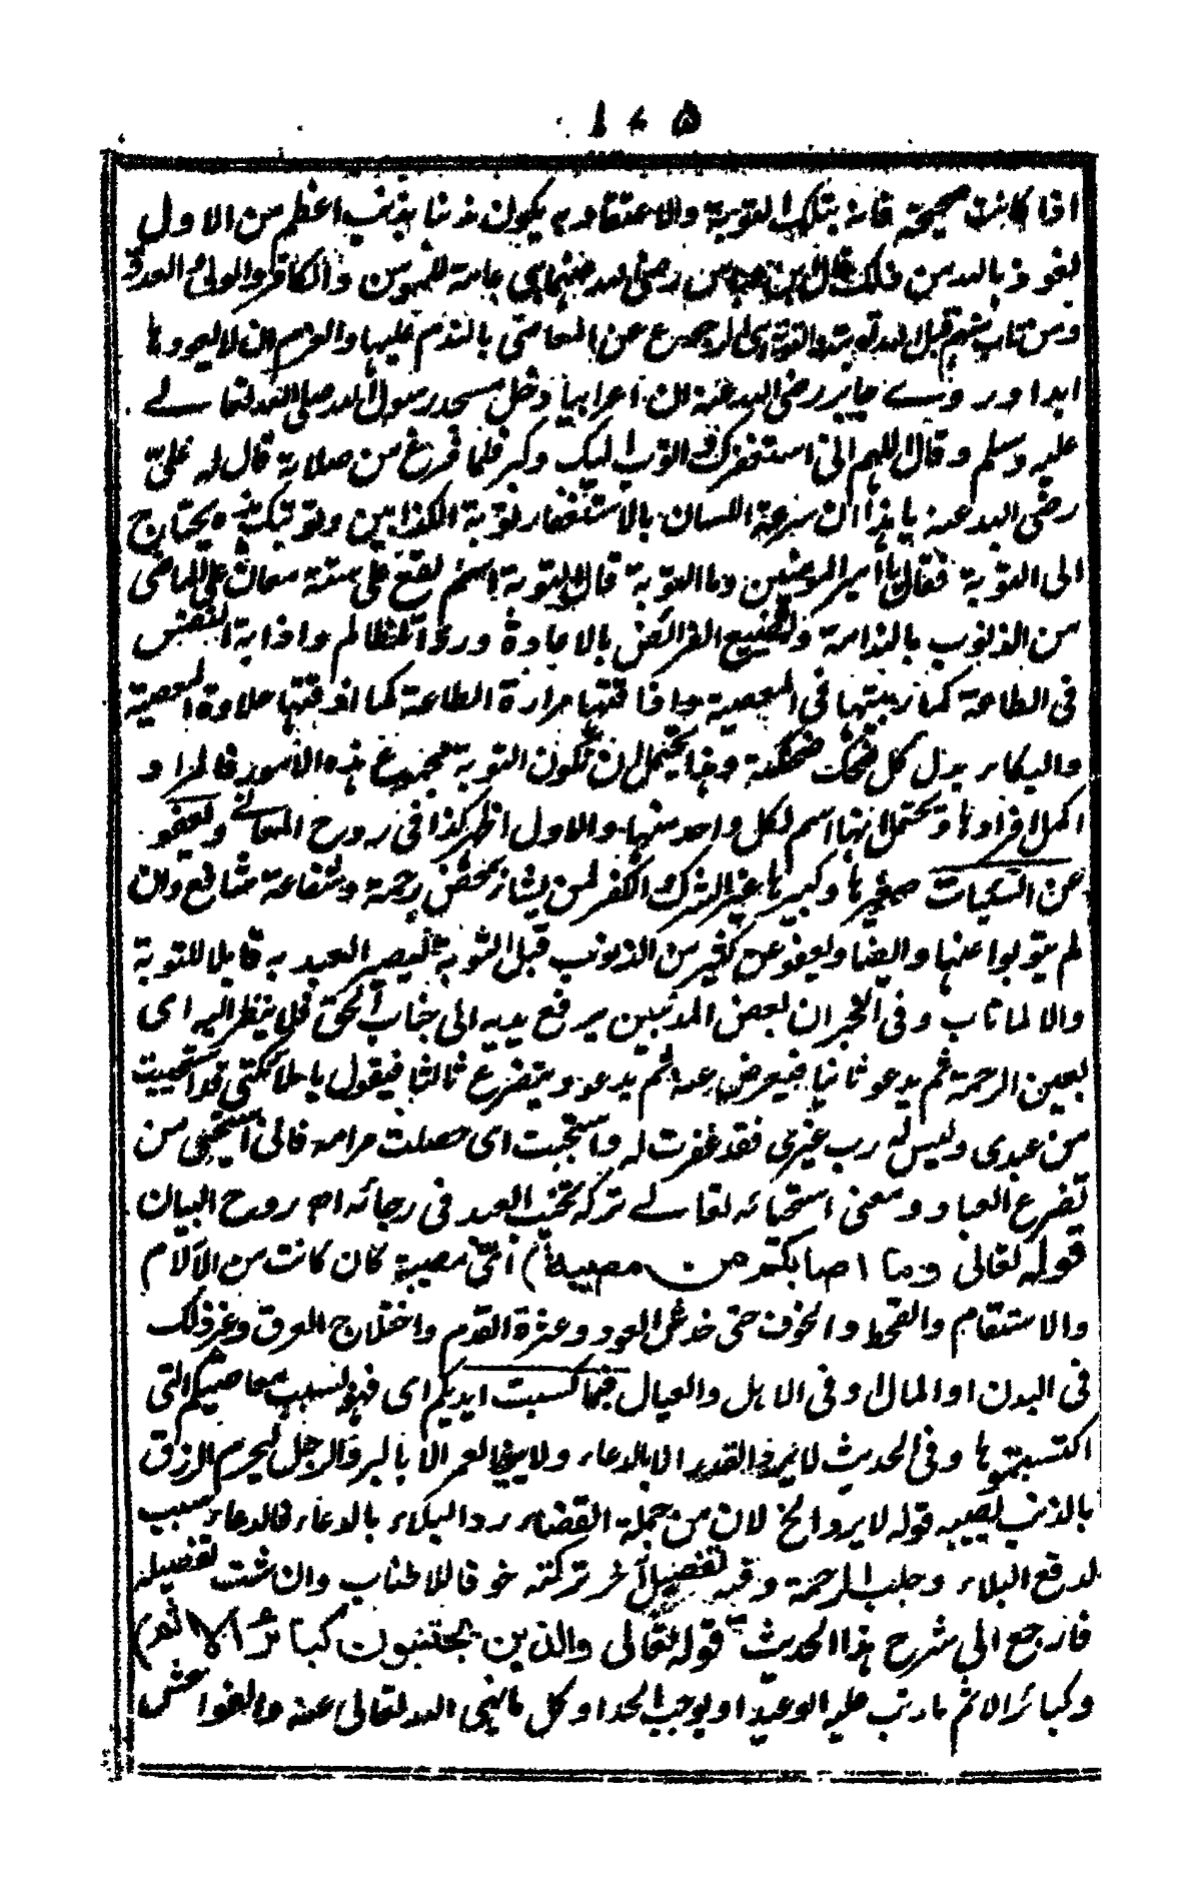 اذا كانت صحيحة فانه بتلك التوبة والاعتقاد به يكون مذنبا بذنب اعظم من الاول
نعوذ بالله من ذلك قال ابن عباس رضي الله عنهما هي عامة للمؤمن والكافر والولي والعدو
ومن تاب منهم قبل الله توبته والتوبة هي الرجوع عن المعاصي بالندم عليها والعزم ان لا يعودها
ابدا وروے جابر رضي الله عنه ان اعرابيا دخل مسجد رسول الله صلى الله تعالے
عليه وسلم وقال اللهم اني استغفرك و اتوب اليك وكبر فلما فرغ من صلاته قال له علي
رضي الله عنه يا هذا ان سرعة اللسان بالاستغفار توبة الكذابين وتوبتك هذه يحتاج
الى التوبة فقال يا امير المؤمنين وما التوبة قال التوبة اسم يقع على ستة معان على الماضي
من الذنوب بالندامة ولتضييع الفرائض بالاعادة ورد المظالم واذابة النفس
في الطاعة كما ربيتها في المعصية واذاقتها مرارة الطاعة كما اذقتها حلاوة المعصية
والبكاء بدل كل ضحك ضحكته وهذا يحتمل ان تكون التوبة مجموع هذه الامور فالمراد
اكمل افرادها وتحتمل انها اسم لكل واحد منها والاول اظهر كذا في روح المعانے ويعفو
عن السيئات صغيرها وكبيرها غير الشرك والكفر لمن يشاء بمحض رحمة وشفاعة شافع وان
لم يتوبوا عنها وايضا ويعفو عن كثير من الذنوب قبل التوبة ليصير العبد به قابلا للتوبة
والا لما تاب وفي الخبر ان بعض المذنبين يرفع يديه الى جناب الحق فلا ينظر اليه اى
بعين الرحمة ثم يدعو ثانيا فيعرض عنه ثم يدعو ويتضرع ثالثا فيقول يا ملائكتي قد استحييت
من عبدى وليس له رب غيرى فقد غفرت له واستجبت اى حصلت مرامه فانى استحيى من
تضرع العباد ومعنى استحيائه تعالے تركه تخييب العبد فى رجائه اھ روح البيان
قوله تعالى وما اصابكم من مصيبة) اىّ مصيبة كان كانت من الآلام
والاسقام والقحط والخوف حتى خدش العود وعثرة القدم واختلاج العرق وغير ذلك
في البدن او المال او في الاهل والعيال فبما كسبت ايديكم اى فهو بسبب معاصيكم التى
اكتسبتموها وفي الحديث لا يرد القدر الا بالدعاء ولا يزيد العمر الا بالبر والرجل ليحرم الرزق
بالذنب يصيبه قوله لا يرد الخ لان من جملة القضاء رد البلاء بالدعاء فالدعاء سبب
لدفع البلاء وجلب الرحمة وفيه تفصيل آخر تركته خوفا للاطناب وان شئت تفصيله
فارجع الى شرح هذا الحديث قوله تعالى والذين يجتنبون كبائر الاثم)
وكبائر الاثم ما رتب عليه الوعيد او يوجب الحد او كل ما نهى الله تعالى عنه والفواحش